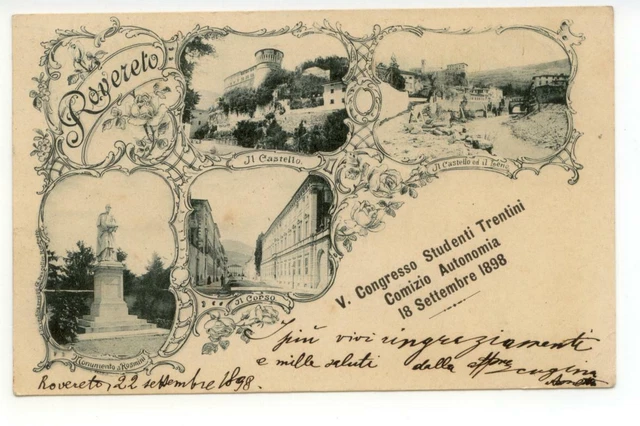 Rovereto
Il Castello.
Il Castello ed il Leno
Il Corso.
Monumento a Rosmini
V. Congresso Studenti Trentini
Comizio Autonomia
18 Settembre 1898
I più vivi ringraziamenti
e mille saluti dalla
cugina
Rovereto, 22 settembre 1898.